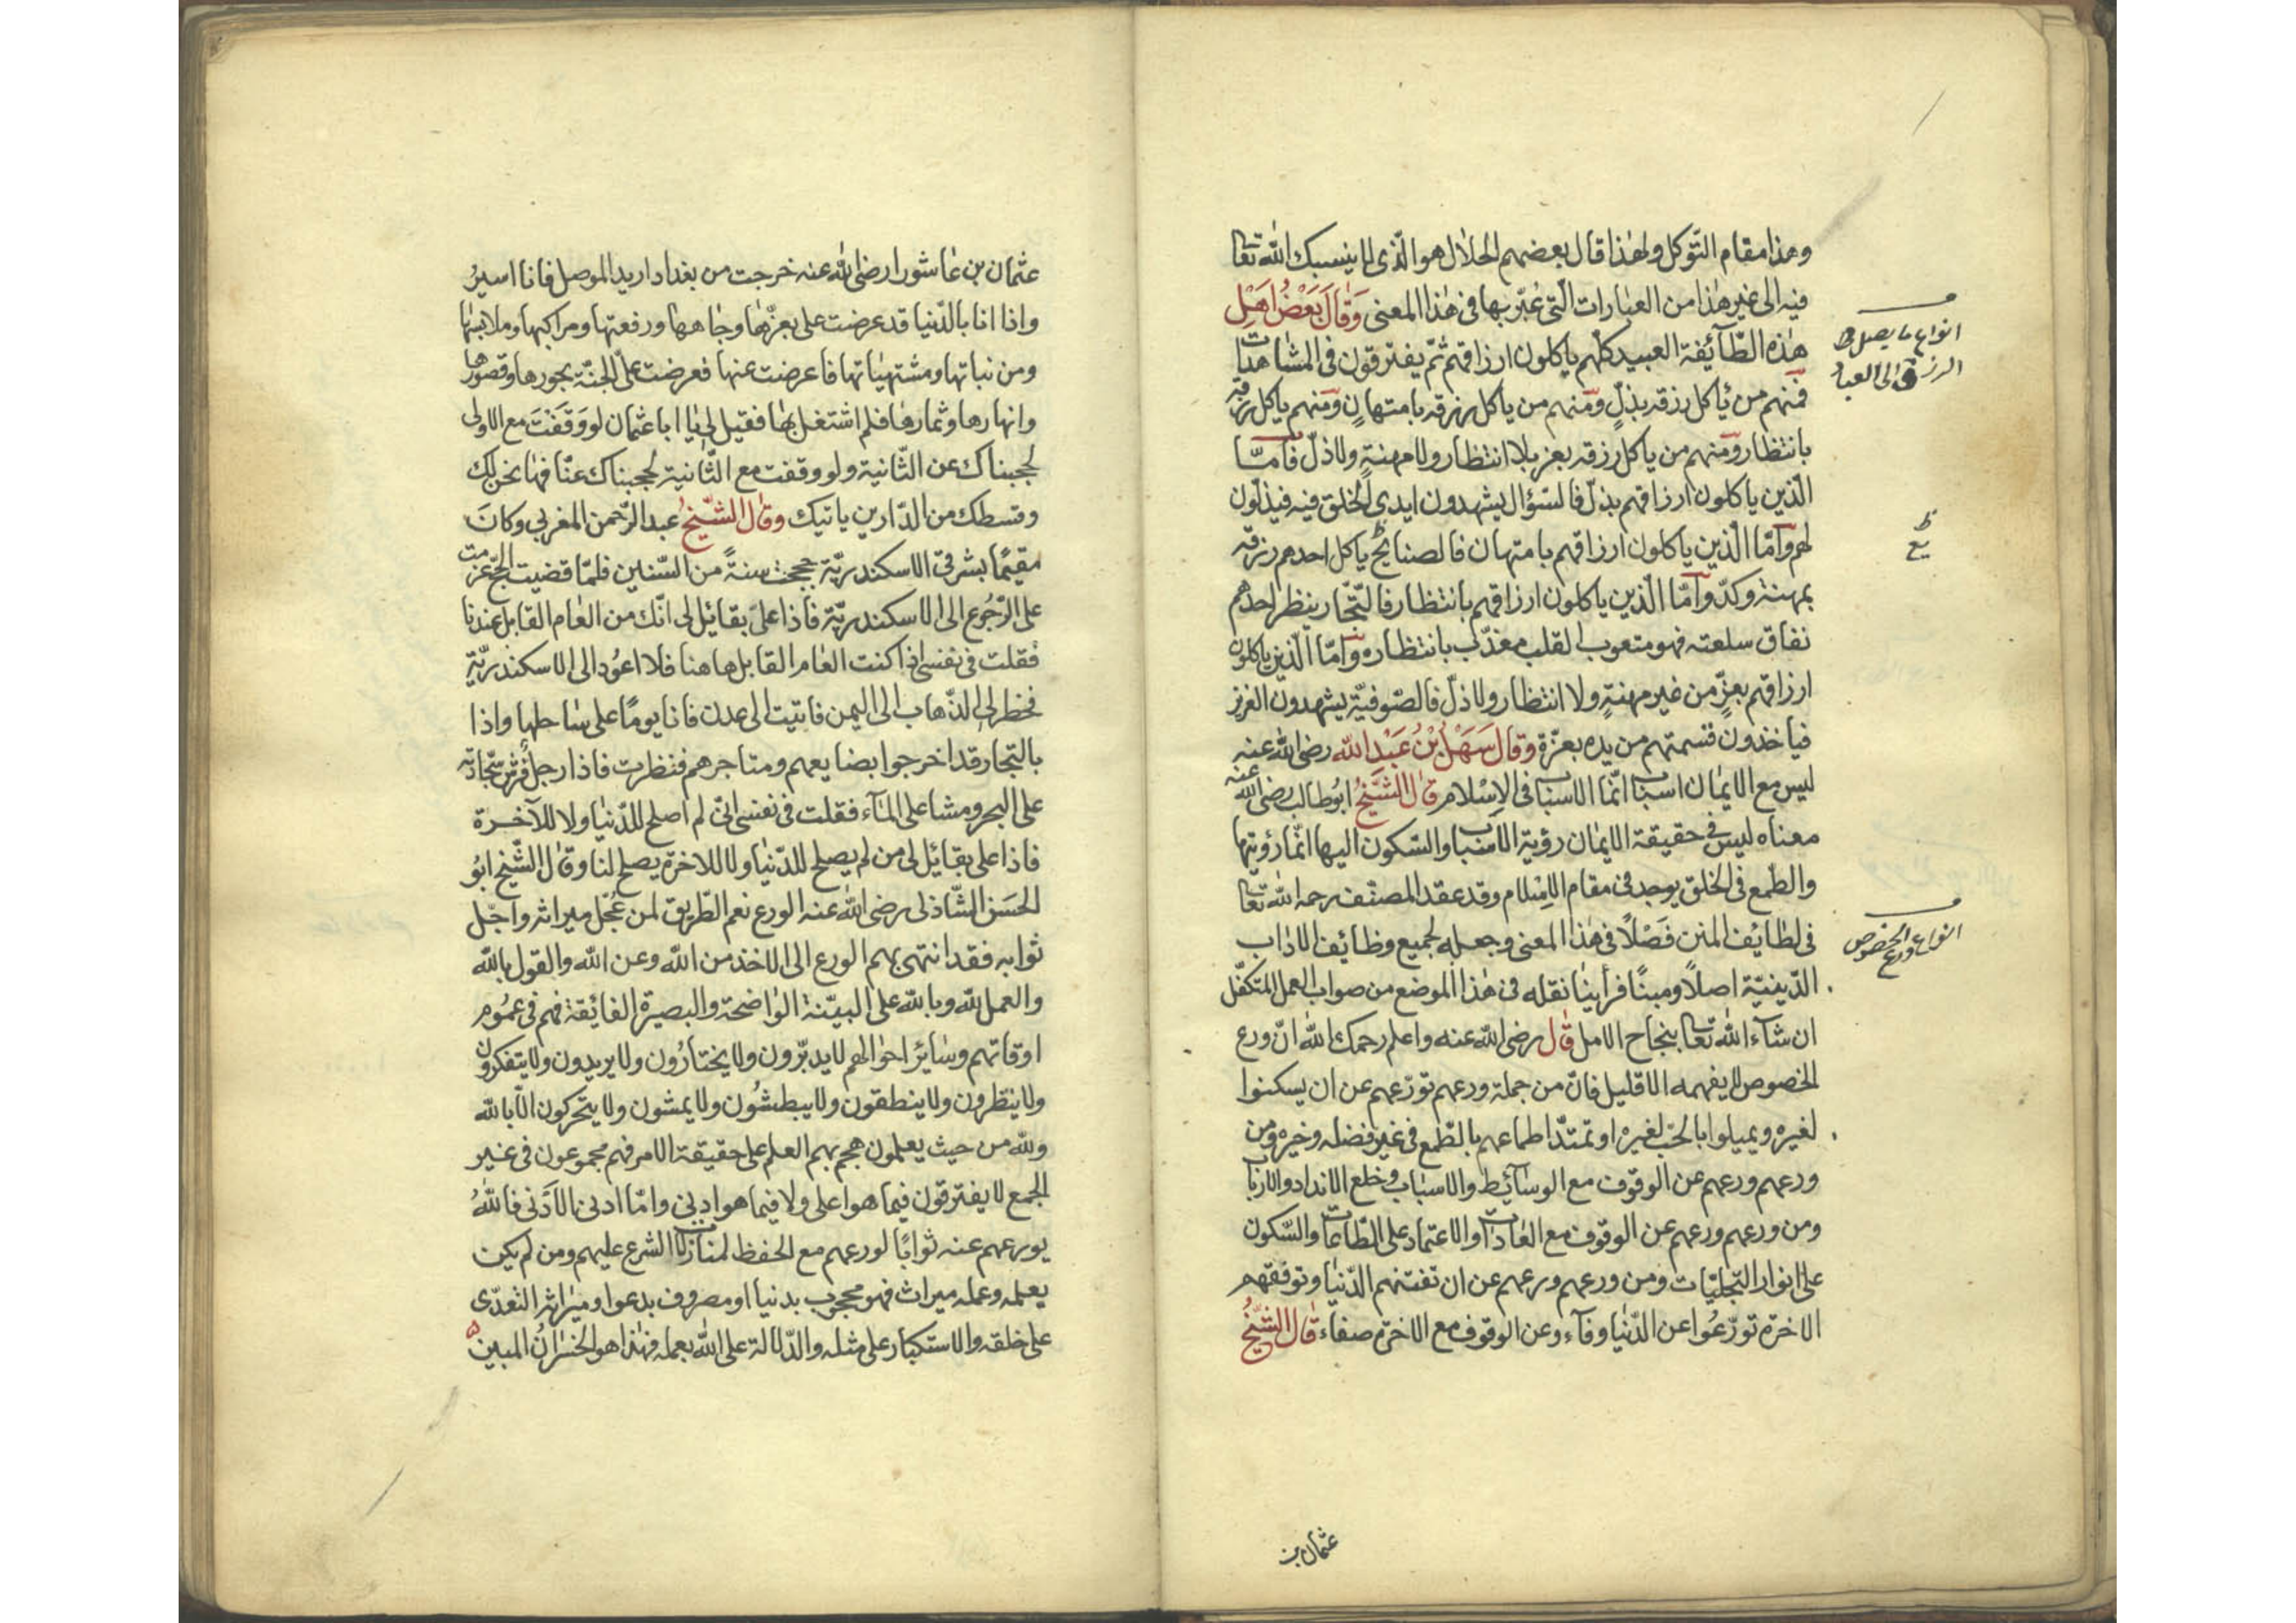 وهذا مقام التوكل ولهذا قال بعضهم الحلال هو الذى لا ينسبك الله تعا
فيه الى غير هذا من العبارات التى عبّر بها فى هذا المعنى وَقَالَ بَعْضُ اَهْلِ
هذه الطّآئفة العبيد كلهم ياكلون ارزاقهم ثمّ يفترقون فى المشاهدات
فمنهم من ياكل رزقه بذلٍ ومنهم من ياكل رزقه بامتهانٍ ومنهم ياكل رزقه
بانتظار ومنهم من ياكل رزقه بعز بلا انتظار ولا مهنةٍ ولا ذلّ فامّا
الّذين ياكلون ارزاقهم بذلّ فالسّؤال يشهدون ايدى الخلق فيه فيذلّون
لهم وامّا الّذين ياكلون ارزاقهم بامتهان فالصنايع ياكل احدهم رزقه
بمهنة وكدّ وامّا الّذين ياكلون ارزاقهم بانتظار فالتّجّار ينظر احدهم
نفاق سلعته فهو متعوب القلب معذّب بانتظاره وامّا الّذين ياكلون
ارزاقهم بعزّ من غير مهنةٍ ولا انتظار ولا ذلّ فالصّوفيّة يشهدون العزيز
فياخذون قسمتهم من يده بعزّة وقال سَهْلُ بْنُ عَبْدِ الله رضى الله عنه
ليس مع الايمان اسباب انّما الاسباب فى الاِسْلام قال الشّيخُ ابوُ طالب رضى الله عنه
معناه ليس فى حقيقة الايمان رؤية الاسباب والسّكون اليها انّما رؤيتها
والطمع فى الخلق يوجد فى مقام الاِسْلام وقد عقد المصنّف رحمه الله تعا
فى لطايُف المنن فَصْلاً فى هذا المعنى وجعله لجميع وظائف الاداب
الدّينيّة اصلاً ومبنًا فرأينا نقله فى هذا الموضع من صواب العمل المتكفّل
ان شآء الله تعا بنجاح الامل قال رضى الله عنه واعلم رحمك الله انّ ورع
الخصوص لا يفهمه الا قليل فانّ من جملة ورعهم تورّعهم عن ان يسكنوا
لغيره ويميلوا بالحبّ لغيره او تمتدّ اطماعهم بالطّمع فى غير فضله وخيره ومن
ورعهم ورعهم عن الوقوف مع الوسآئط والاسباب وخلع الانداد والارباب
ومن ورعهم ورعهم عن الوقوف مع العادات والاعتماد على الطاعات والسّكون
على انوار التّجلّيات ومن ورعهم ورعهم عن ان تفتنهم الدّنيا وتوقفهم
الاخرة تورّعُوا عن الدّنيا وفآء وعن الوقوف مع الاخرة صفاء قال الشّيخُ
عثمان بن
انواع ما يصل به
الرزق الى العباد
انواع ورع الخصوص
عثمان بن عاشورا رضى الله عنه خرجت من بغداد اريد الموصل فانا اسيرُ
واذا انا بالدّنيا قد عرضت على بعزّها وجاهها ورفعتها ومراكبها وملابسها
ومن نباتها ومشتهياتها فاعرضت عنها فعرضت علىّ الجنّة بحورها وقصورها
وانهارها وثمارها فلم اشتغل بها فقيل لى يا ابا عثمان لو وَقَفْتَ مع الاولى
لحجبناك عن الثّانية ولو وقفت مع الثّانية لحجبناك عنّا فها نحن لك
وقسطك من الدّارين ياتيك وقال الشّيخُ عبد الرّحمن المغربى وكانَ
مقيمًا بشرقى الاسكندريّة حججت سنةً من السّنين فلمّا قضيت الحجّ عزمت
على الرّجُوع الى الاسكندريّة فاذا علىّ بقائل لى انّك من العام القابل عندنا
فقلت فى نفسى اذا كنت العام القابل هاهنا فلا اعوُد الى الاسكندريّة
فخطر لى الذّهاب الى اليمن فاتيت الى عدن فانا يومًا على ساحلها واذا
بالتجار قد اخرجوا بضايعهم ومتاجرهم فنظرت فاذا رجل فرش سجّادته
على البحر ومشا على المآء فقلت فى نفسى انّى لم اصلح للدّنيا ولا للآخرة
فاذا على بقائل لى من لم يصلح للدّنيا ولا للاخرة يصلح لنا وقال الشّيخ ابوُ
الحسَن الشّاذلى رضى الله عنه الورع نعم الطّريق لمن عُجّل ميراثه واجّل
ثوابه فقد انتهى بهم الورع الى الاخذ من الله وعن الله والقول بالله
والعمل لله وبالله على البيّنة الواضحة والبصيرة الفائقة فهم فى عمُوم
اوقاتهم وسائر احوالهم لا يدبّرون ولا يختارُون ولا يريدون ولا يتفكرون
ولا ينظرون ولا ينطقون ولا يبطشُون ولا يمشون ولا يتحركون الّا بالله
ولله من حيث يعلمون هجم بهم العلم على حقيقة الامر فهم مجموعون فى غير
الجمع لا يفترقون فيما هو اعلى ولا فيما هو ادنى وامّا ادنى الادَنى فاللهُ
يورعهم عنه ثوابًا لورعهم مع الحفظ لمنازلات الشرع عليهم ومن لم يكن
يعلمه وعمله ميراث فهو محجوب بدنيا او مصروف بدعوا وميراثه التعدّى
على خلقه والاستكبار على مثله والدّلالة على الله بعمله فهذا هو الخسرانُ المبين